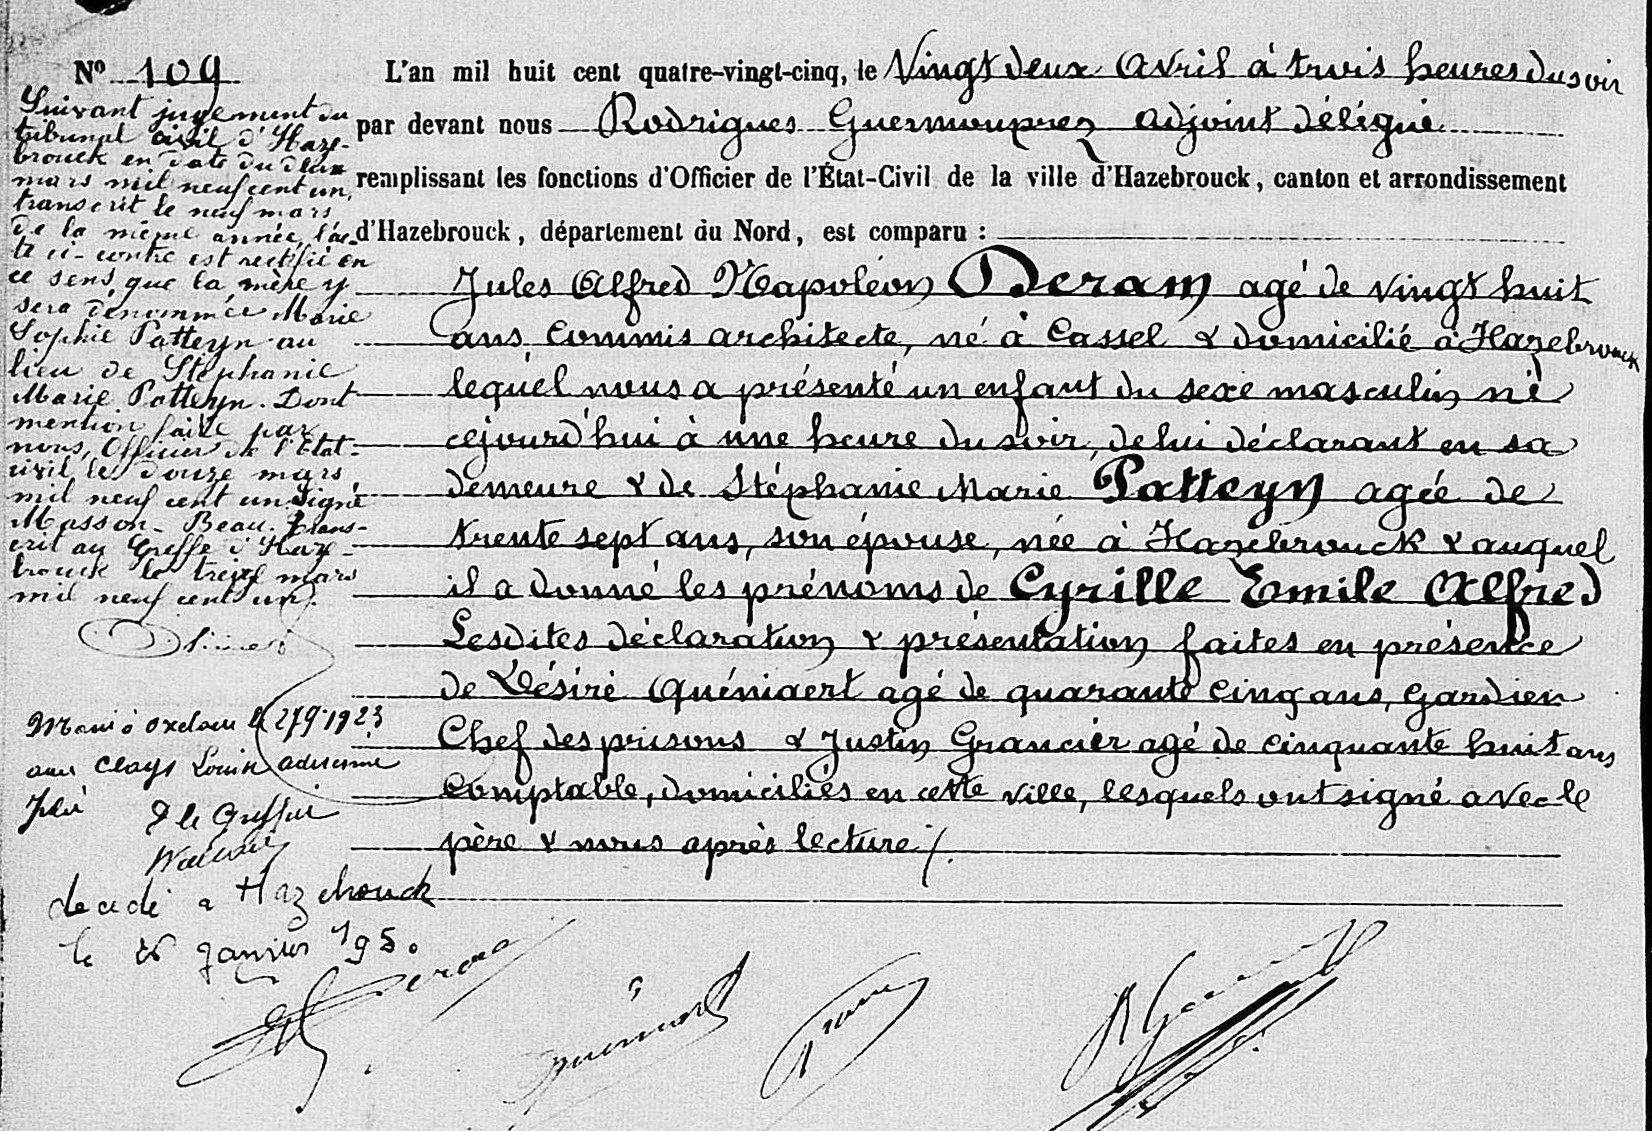 N° 109
L'an mil huit cent quatre-vingt-cinq, le Vingt deux Avril à trois heures du soir
par devant nous Rodrigues Guermonprez adjoint délégué
remplissant les fonctions d'Officier de l'État-Civil de la ville d'Hazebrouck, canton et arrondissement
d'Hazebrouck, département du Nord, est comparu :
Jules Alfred Napoléon Deram agé de vingt huit
ans, commis architecte, né à Cassel & domicilié à Hazebrouck
lequel nous a présenté un enfant du sexe masculin né
cejourd'hui à une heure du soir, de lui déclarant en sa
demeure & de Stéphanie Marie Patteyn agée de
trente sept ans, son épouse, née à Hazebrouck & auquel
il a donné les prénoms de Cyrille Emile Alfred
Lesdites déclaration & présentation faites en présence
de Désiré Quéniaert agé de quarante cinq ans, gardien
Chef des prisons & Justin Grancier agé de cinquante huit ans
Comptable, domiciliés en cette ville, lesquels ont signé avec le
père & nous après lecture /.
Suivant jugement du
tribunal civil d'Haze-
brouck en date du deux
mars mil neuf cent un,
transcrit le neuf mars
de la même année, l'ac-
te ci-contre est rectifié en
ce sens, que la mère y
sera dénommée Marie
Sophie Patteyn au
lieu de Stéphanie
Marie Patteyn. Dont
mention faite par
nous, Officier de l'État-
civil le douze mars
mil neuf cent un Signé
Masson-Beau. Trans-
crit au Greffe d'Haze-
brouck le treize mars
mil neuf cent un.
Marié à Oxelaere le 27 9 1923
avec Claeys Louise Adrienne
Julie
P le Greffier
decedé a Hazebrouck
le 26 Janvier 1950
Deram